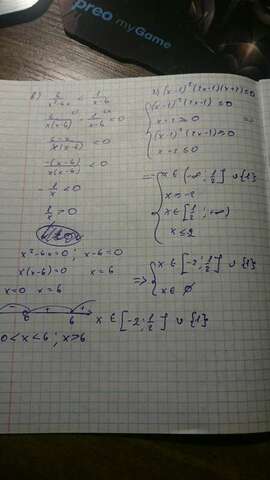 preo myGame
в) 6/(x²-6x) < 1/(x-6)
6/(x(x-6)) - 1/(x-6) < 0
(6-x)/(x(x-6)) < 0
-(x-6)/(x(x-6)) < 0
-1/x < 0
1/x > 0
x²-6x=0; x-6=0
x(x-6)=0 x=6
x=0 x=6
0 6
0<x<6; x>6
(x-1)²(2x-1)(x+2)≤0
(x-1)²(2x-1)≤0
(x-1)²(2x-1)≥0
=> x∈(-∞; 1/2]∪{1}
x≥-2
x∈[1/2; +∞)
=> x∈[-2; 1/2]∪{1}
x∈∅
x∈[-2; 1/2]∪{1}